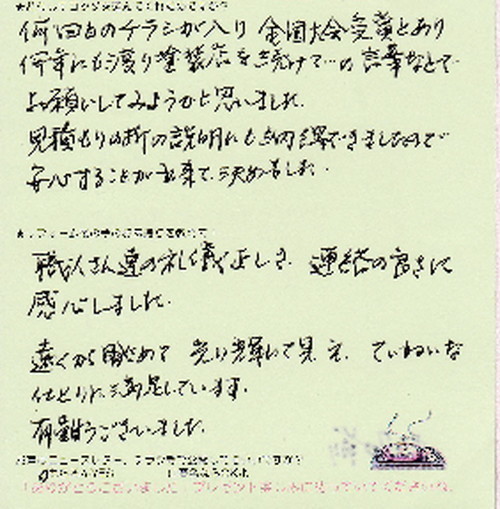 何回もチラシが入り 全国大会受賞とあり
何年にも渡り塗装店を続けて…の言葉などで
お願いしてみようかと思いました。
見積もりの折の説明にも納得できましたので
安心することが出来て決めました。
職人さん達の礼儀正しさ、連絡の良さに
感心しました。
遠くから眺めて 光り輝いて見え、ていねいな
仕上りに満足しています。
有難うございました。